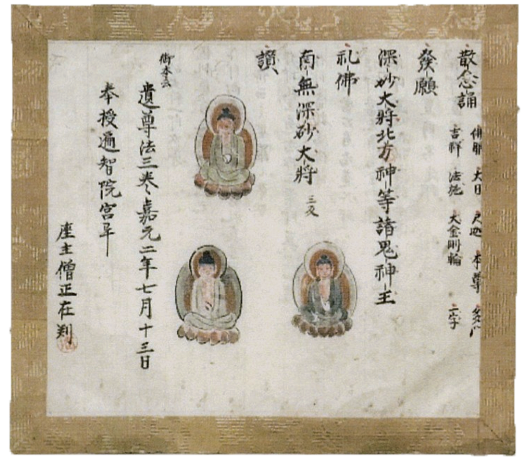 散念誦 佛眼 大日 尺迦 本尊
吉祥 法施 大金剛輪 一字
發願
深妙大將北方神等諸鬼神王
礼佛
南無深砂大將 三反
讃
御本云
遺尊法三卷嘉元二年七月十三日
奉授遍智院宮畢
座主僧正在判